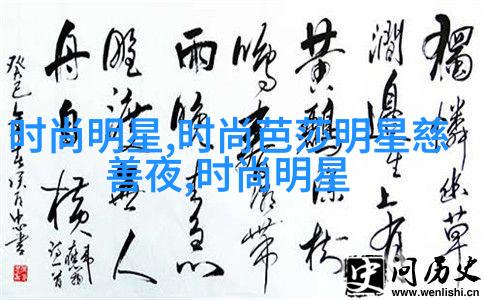 獨憐幽草
澗邊生上有
黄鸝深樹
鳴春潮帶
雨晚来急
野渡無人
舟自横
时尚明星,时尚芭莎明星慈
善夜,时尚明星
史问历史
www.wenlishi.cn